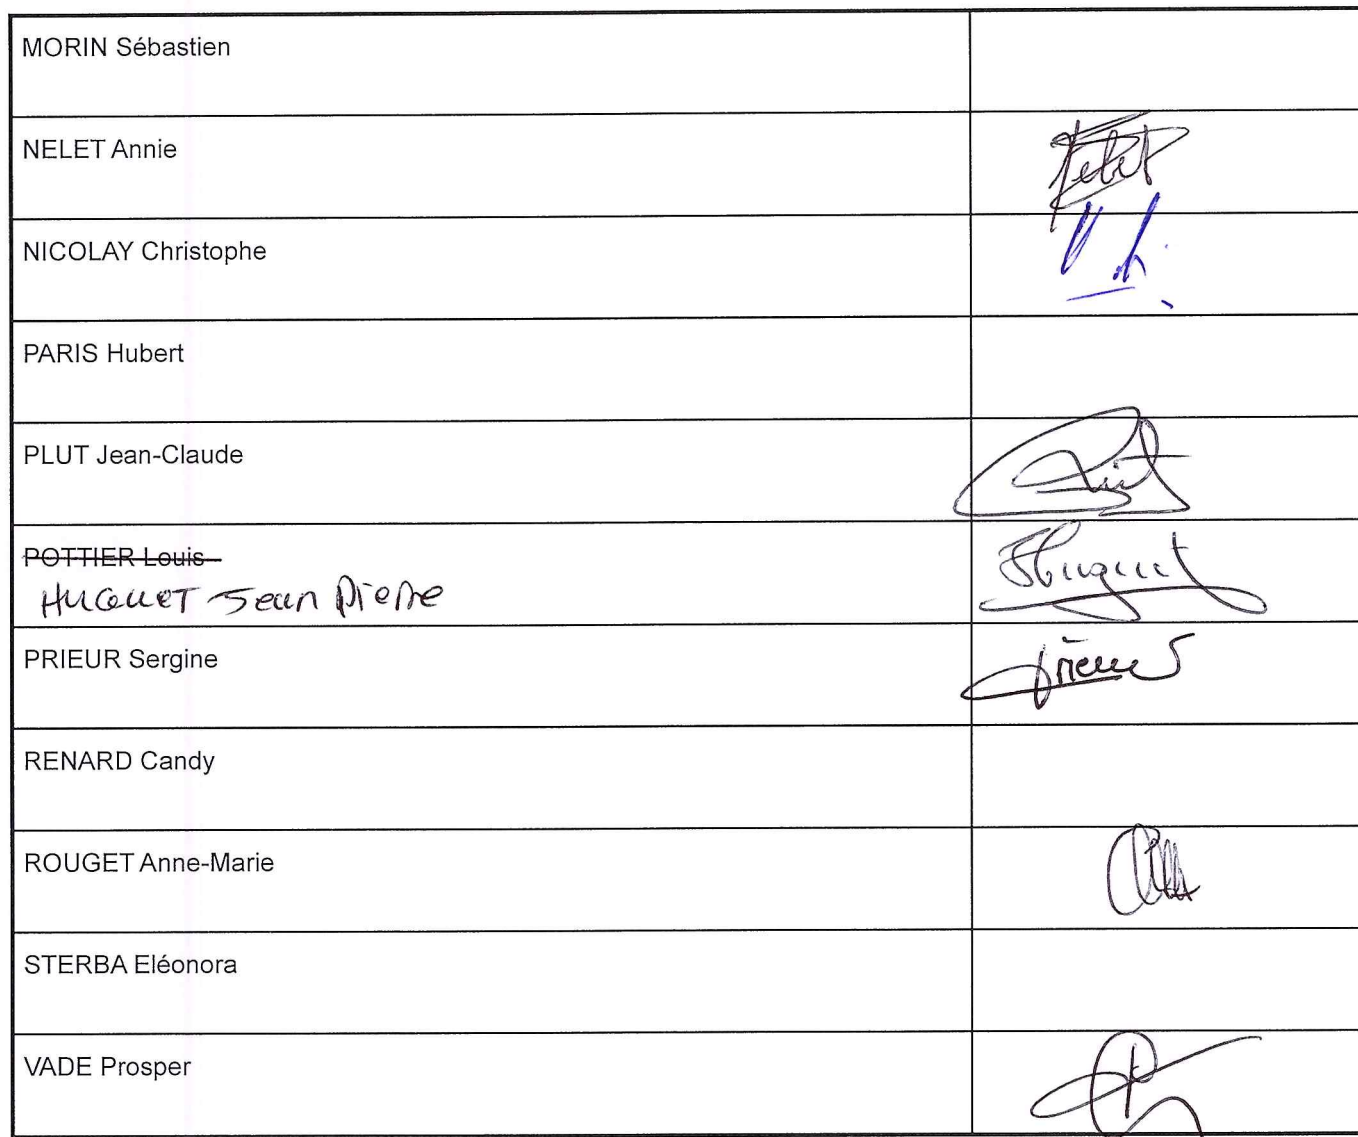 MORIN Sébastien
NELET Annie
Nelet
NICOLAY Christophe
PARIS Hubert
PLUT Jean-Claude
Plut
POTTIER Louis
HUQUET Jean Pierre
JHuquet
PRIEUR Sergine
Prieur S
RENARD Candy
ROUGET Anne-Marie
STERBA Eléonora
VADE Prosper